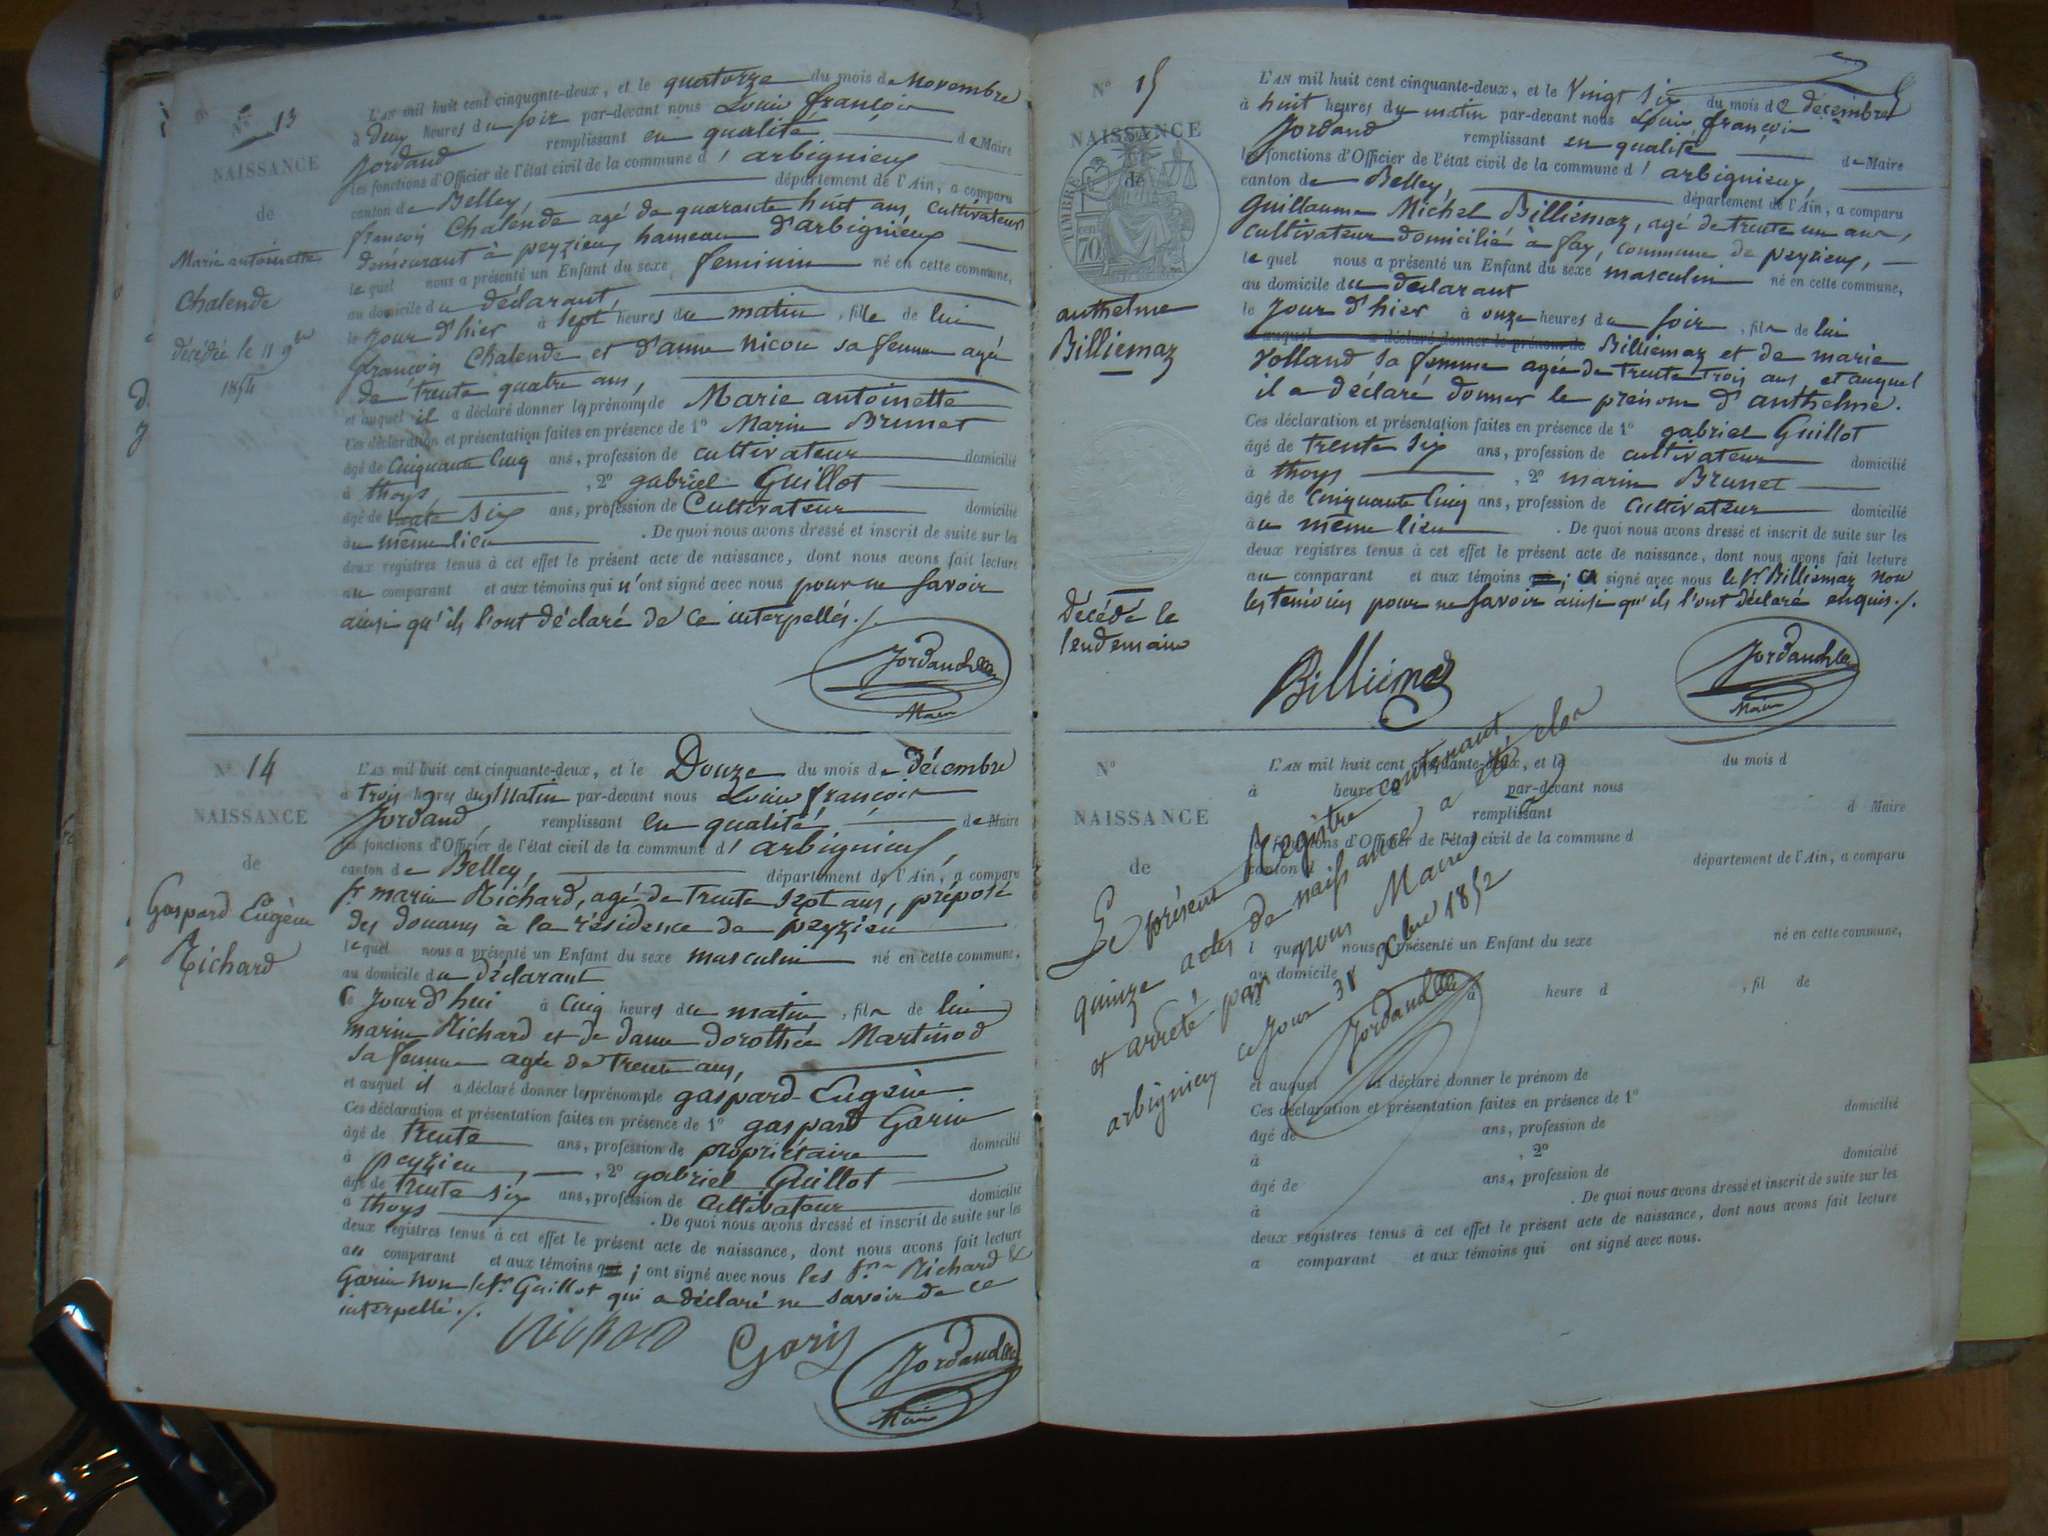 N° 13
NAISSANCE
de
Marie antoinette
Chalende
décédée le 11 9bre
1854
L'AN mil huit cent cinquante-deux, et le quatorze du mois de Novembre
à deux heures du soir par-devant nous Louis françois
Jordand remplissant en qualité de Maire
les fonctions d'Officier de l'état civil de la commune d'arbignieux
canton de Belley, département de l'Ain, a comparu
françois Chalende agé de quarante huit ans cultivateur
demeurant à peyzieux hameau d'arbignieux
lequel nous a présenté un Enfant du sexe feminin né en cette commune,
au domicile du déclarant,
le jour d'hier à sept heures du matin, fille de lui
françois Chalende et d'anne nicou sa femme agée
de trente quatre ans,
et auquel il a déclaré donner les prénoms de Marie antoinette
Ces déclaration et présentation faites en présence de 1° Marin Brunet
âgé de cinquante cinq ans, profession de cultivateur domicilié
à thoys, 2° gabriel Guillot
âgé de trente six ans, profession de Cultivateur domicilié
au même lieu. De quoi nous avons dressé et inscrit de suite sur les
deux registres tenus à cet effet le présent acte de naissance, dont nous avons fait lecture
au comparant et aux témoins qui n'ont signé avec nous pour ne savoir
ainsi qu'ils l'ont déclaré de ce interpellés./.
Jordand
Maire
N° 14
NAISSANCE
de
Gaspard Eugène
Richard
L'AN mil huit cent cinquante-deux, et le Douze du mois de Décembre
à trois heures du Matin par-devant nous Louis françois
Jordand remplissant en qualité de Maire
les fonctions d'Officier de l'état civil de la commune d'arbignieux,
canton de Belley, département de l'Ain, a comparu
sr marin Richard, agé de trente sept ans, préposé
des douanes à la résidence de peyzieu
lequel nous a présenté un Enfant du sexe masculin né en cette commune,
au domicile du déclarant
le jour d'hui à cinq heures du matin, fils de lui
marin Richard et de dame dorothée Martinod
sa femme agée de trente ans,
et auquel il a déclaré donner les prénoms de gaspard Eugène
Ces déclaration et présentation faites en présence de 1° gaspard Garin
âgé de trente ans, profession de propriétaire domicilié
à peyzieu, 2° gabriel Guillot
âgé de trente six ans, profession de cultivateur domicilié
à thoys. De quoi nous avons dressé et inscrit de suite sur les
deux registres tenus à cet effet le présent acte de naissance, dont nous avons fait lecture
au comparant et aux témoins qui; ont signé avec nous les srs Richard &
Garin non le sr. Guillot qui a déclaré ne savoir de ce
interpellé./.
Richard Garin Jordand
Maire
N° 15
NAISSANCE
de
TIMBRE
70
anthelme
Billiemaz
Décédé le
lendemain
L'AN mil huit cent cinquante-deux, et le Vingt six du mois de décembre
à huit heures du matin par-devant nous Louis françois
Jordand remplissant en qualité de Maire
les fonctions d'Officier de l'état civil de la commune d'arbignieux,
canton de Belley, département de l'Ain, a comparu
Guillaume Michel Billiémaz, agé de trente un ans,
cultivateur domicilié à fay, commune de peyzieux,
lequel nous a présenté un Enfant du sexe masculin né en cette commune,
au domicile du declarant
le jour d'hier à onze heures du soir, fils de lui
et auquel a déclaré donner le prénom de Billiémaz et de marie
rolland sa femme agée de trente trois ans et auquel
il a déclaré donner le prénom d'anthelme.
Ces déclaration et présentation faites en présence de 1° gabriel Guillot
âgé de trente six ans, profession de cultivateur domicilié
à thoys, 2° marin Brunet
âgé de cinquante cinq ans, profession de Cultivateur domicilié
au même lieu. De quoi nous avons dressé et inscrit de suite sur les
deux registres tenus à cet effet le présent acte de naissance, dont nous avons fait lecture
au comparant et aux témoins; a signé avec nous le sr. Billiemaz non
les temoins pour ne savoir ainsi qu'ils l'ont déclaré enquis./.
Billiemaz Jordand
Maire
N°
NAISSANCE
de
L'AN mil huit cent cinquante-deux, et le du mois d
à heure d par-devant nous
remplissant d Maire
les fonctions d'Officier de l'état civil de la commune d
canton d département de l'Ain, a comparu
l quel nous a présenté un Enfant du sexe né en cette commune,
au domicile
à heure d , fil de
et auquel a déclaré donner le prénom de
Ces déclaration et présentation faites en présence de 1°
âgé de ans, profession de domicilié
à , 2°
âgé de ans, profession de domicilié
à . De quoi nous avons dressé et inscrit de suite sur les
deux registres tenus à cet effet le présent acte de naissance, dont nous avons fait lecture
a comparant et aux témoins qui ont signé avec nous.
Le présent Registre contenant
quinze actes de naissance, a eté clos
et arrêté par nous Maire
arbignieux ce jour 31 Xbre 1852
Jordand